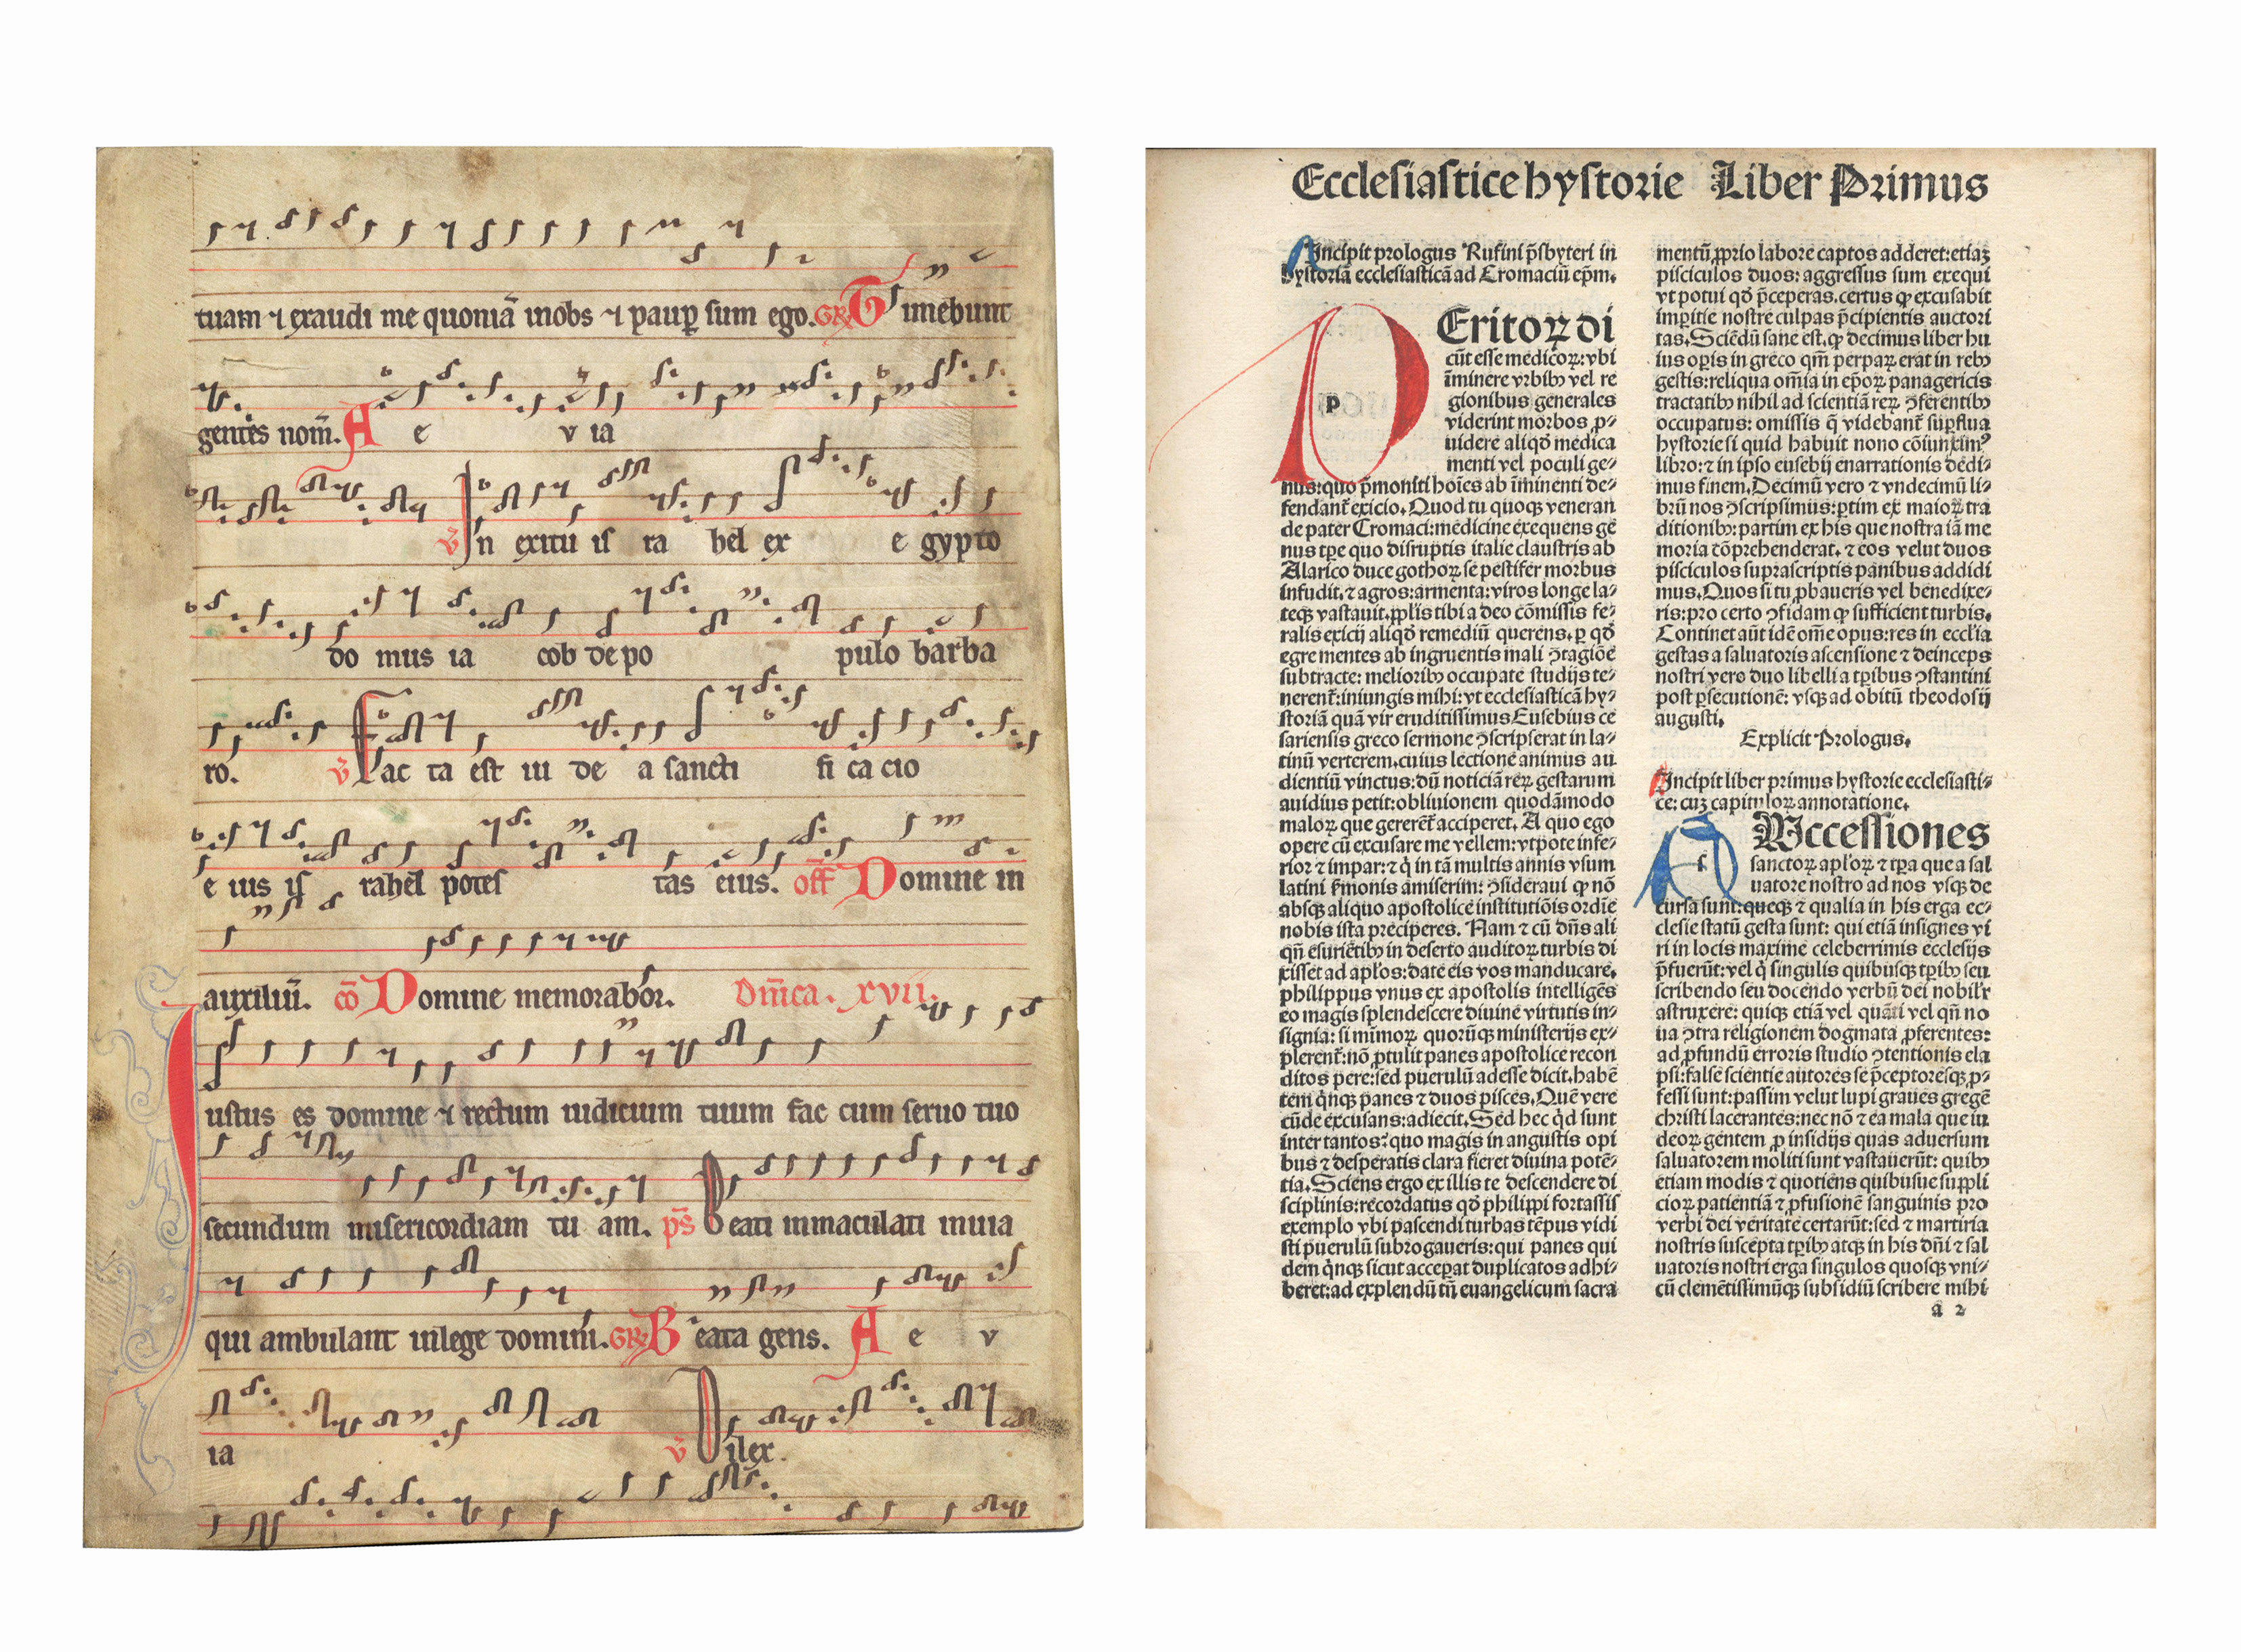 tuam ⁊ exaudi me quoniā inobs ⁊ paup̲ sum ego. GR̲ Timebunt
gentes nom̄. A e v ia
v̄ In exitu isrl ra hel ex e gypto
do mus ia cob de po pulo barba
ro. v̄ Fac ta est iu de a sancti fi ca cio
e ius is rahel potes tas eius. off̄ Domine in
auxiliū. cō Domine memorabor. Dm̄ca. xvii.
Iustus es domine ⁊ rectum iudicium tuum fac cum seruo tuo
secundum misericordiam tu am. ps̄ Beati inmaculati inuia
qui ambulant inlege domini. GR̲ Beata gens. A e v
ia v̄ Dilex
Eccleſiaſtice hyſtorie Liber Primus
Incipit prologus Rufini p̄ſbyteri in
hyſtoriā eccleſiaſticā ad Cromaciū ep̄m.
p Eritoꝝ di
cūt eſſe medicoꝝ: vbi
īminere vrbibꝰ vel re
gionibus generales
viderint morbos ꝓ⸗
uidere aliqd̄ medica
menti vel poculi ge⸗
nus: quo p̄moniti hoīes ab īminenti de⸗
fendant̄ exicio. Quod tu quoqꝫ veneran
de pater Cromaci: medicine exequens ge
nus tꝑe quo diſruptis italie clauſtris ab
Alarico duce gothoꝝ ſe peſtifer morbus
infudit. ⁊ agros: armenta: viros longe la⸗
teqꝫ vaſtauit. ꝓplis tibi a deo cōmiſſis fe⸗
ralis exicij aliqd̄ remediū querens. ꝑ qd̄
egre mentes ab ingruentis mali ꝯtagiōe
ſubtracte: melioribꝰ occupate ſtudijs te⸗
nerent̄: iniungis mihi: vt eccleſiaſticā hy⸗
ſtoriā quā vir eruditiſſimus Euſebius ce
ſarienſis greco ſermone ꝯſcripſerat in la⸗
tinū verterem. cuius lectione animus au
dientiū vinctus: dū noticiā reꝝ geſtarum
auidius petit: obliuionem quodāmodo
maloꝝ que gererēt̄ acciperet. A quo ego
opere cū excuſare me vellem: vtpote infe⸗
rior ⁊ impar: ⁊ q̇ in tā multis annis vſum
latini ẜmonis amiſerim: ꝯſideraui ꝙ nō
abſqꝫ aliquo apoſtolice inſtitutiōis ordīe
nobis iſta preciperes. Nam ⁊ cū dn̄s ali
qn̄ eſuriētibꝰ in deſerto auditoꝝ turbis di
xiſſet ad apl̄os: date eis vos manducare.
philippus vnus ex apoſtolis intelligēs
eo magis ſplendeſcere diuine virtutis in⸗
ſignia: ſi mimoꝝ quorūqꝫ miniſterijs ex⸗
plerent̄: nō ꝓtulit panes apoſtolice recon
ditos pere: ſed puerulū adeſſe dicit. habē
tem q̇nqꝫ panes ⁊ duos piſces. Quē vere
cūde excuſans: adiecit. Sed hec qd̄ ſunt
inter tantos? quo magis in anguſtis opi
bus ⁊ deſperatis clara fieret diuina potē⸗
tia. Sciens ergo ex illis te deſcendere di
ſciplinis: recordatus qd̄ philippi fortaſſis
exemplo vbi paſcendi turbas tēpus vidi
ſti puerulū ſubrogaueris: qui panes qui
dem q̇nqꝫ ſicut acceꝑat duplicatos adhi⸗
beret: ad explendū tn̄ euangelicum ſacra
mentū ꝓprio labore captos adderet: etiaꝫ
piſciculos duos: aggreſſus ſum exequi
vt potui qd̄ p̄ceperas. certus ꝙ excuſabit
imꝑitie noſtre culpas p̄cipientis auctori
tas. Sciēdū ſane eſt. ꝙ decimus liber hu
ius oꝑis in greco qm̄ perpaꝝ erat in rebꝰ
geſtis: reliqua om̄ia in ep̄oꝝ panagericis
tractatibꝰ nihil ad ſcientiā reꝝ ꝯferentibꝰ
occupatus: omiſſis q̄ videbant̄ ſuꝑflua
hyſtorie ſi quid habuit nono cōiunximꝰ
libro: ⁊ in ipſo euſebij enarrationis dedi⸗
mus finem. Decimū vero ⁊ vndecimū li⸗
brū nos ꝯſcripſimus: ꝑtim ex maioꝝ tra
ditionibꝰ: partim ex his que noſtra iā me
moria cōprehenderat. ⁊ eos velut duos
piſciculos ſupraſcriptis panibus addidi
mus. Quos ſi tu ꝓbaueris vel benedixe⸗
ris: pro certo ꝯfidam ꝙ ſufficient turbis.
Continet aūt idē om̄e opus: res in eccl̄ia
geſtas a ſaluatoris aſcenſione ⁊ deinceps
noſtri vero duo libelli a tꝑibus ꝯſtantini
poſt ꝑſecutionē: vſqꝫ ad obitū theodoſij
auguſti.
Explicit Prologus.
Incipit liber primus hyſtorie eccleſiaſti⸗
ce: cuꝫ capituloꝝ annotatione.
ſ Vcceſſiones
ſanctoꝝ apl̄oꝝ ⁊ tꝑa que a ſal
uatore noſtro ad nos vſqꝫ de
curſa ſunt: queqꝫ ⁊ qualia in his erga ec⸗
cleſie ſtatū geſta ſunt: qui etiā inſignes vi
ri in locis maxime celeberrimis eccleſijs
p̄fuerūt: vel q̇ ſingulis quibuſqꝫ tꝑibꝰ ſeu
ſcribendo ſeu docendo verbū dei nobilr̄
aſtruxere: quiqꝫ etiā vel quāti vel qn̄ no
ua ꝯtra religionem dogmata ꝓferentes:
ad ꝓfundū erroris ſtudio ꝯtentionis ela
pſi: falſe ſcientie autores ſe p̄ceptoreſqꝫ ꝓ⸗
feſſi ſunt: paſſim velut lupi graues gregē
chriſti lacerantes: nec nō ⁊ ea mala que iu
deoꝝ gentem ꝓ inſidijs quas aduerſum
ſaluatorem moliti ſunt vaſtauerūt: quibꝰ
etiam modis ⁊ quotiens quibuſue ſuppli
cioꝝ patientiā ⁊ ꝓfuſionē ſanguinis pro
verbi dei veritate certarūt: ſed ⁊ martiria
noſtris ſuſcepta tꝑibꝰ atqꝫ in his dn̄i ⁊ ſal
uatoris noſtri erga ſingulos quoſqꝫ vni⸗
cū clemētiſſimūqꝫ ſubſidiū ſcribere mihi
a 2